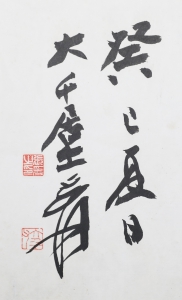 癸巳夏日
大千居士爰